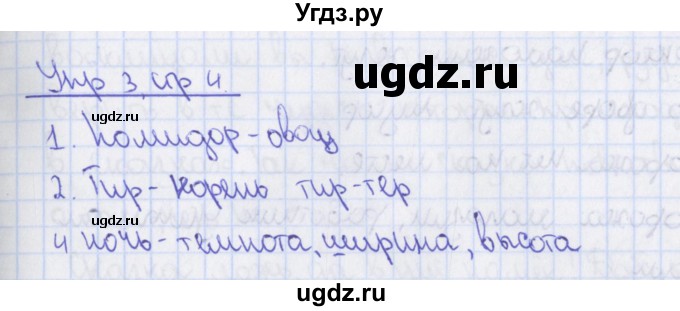 Угдз.ру
Упр 3 стр 4.
ugdz.ru
ugdz.ru
1. Помидор - овощ
ugdz.ru
2. Тир - корень тир - тер
ugdz.ru
4 ночь - темнота, ширина, высота
ugdz.ru